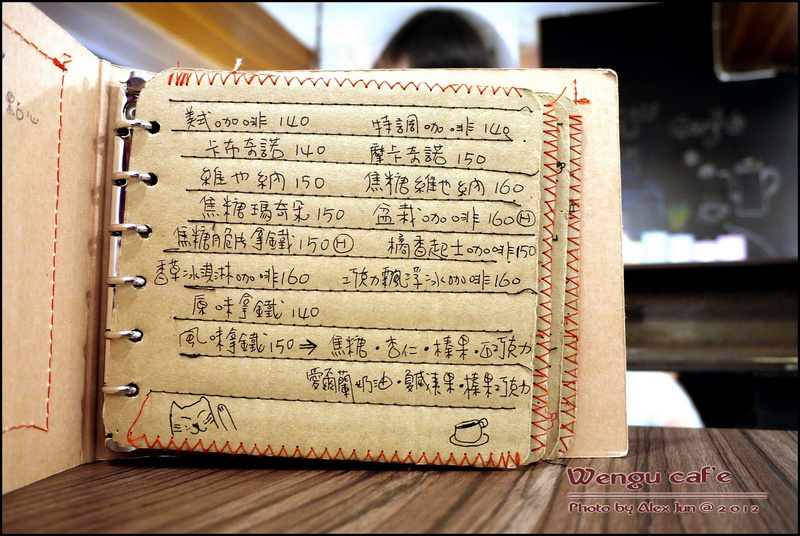 點心
美式咖啡 140 特調咖啡 140
卡布奇諾 140 摩卡奇諾 150
維也納 150 焦糖維也納 160
焦糖瑪奇朵 150 盆栽咖啡 160 Ⓗ
焦糖脆片拿鐵 150 Ⓗ 橘香起士咖啡 150
香草冰淇淋咖啡 160 巧克力飄浮冰咖啡 160
原味拿鐵 140
風味拿鐵 150 → 焦糖・杏仁・榛果・巧克力
愛爾蘭奶油・鹹榛果・榛果巧克力
Wengu caf'e
Photo by Alex Jun @ 2012